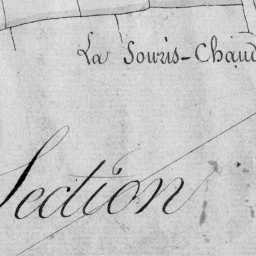 La Souris-Chaud
Section